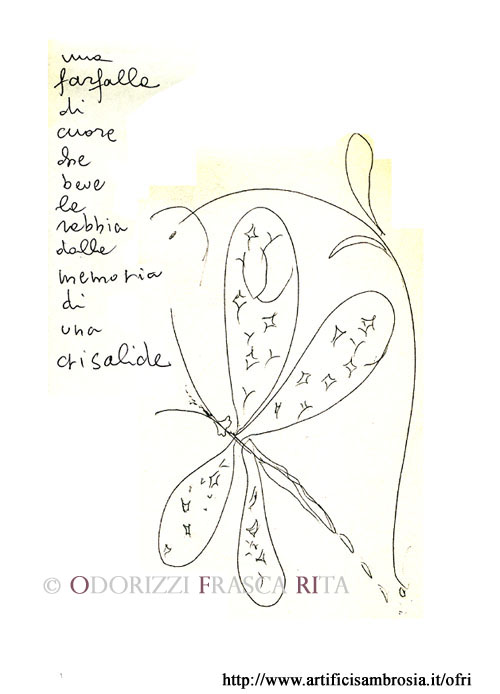 una
farfalla
di
cuore
che
beve
la
rabbia
dalla
memoria
di
una
crisalide
© ODORIZZI FRASCA RITA
http://www.artificisambrosia.it/ofri